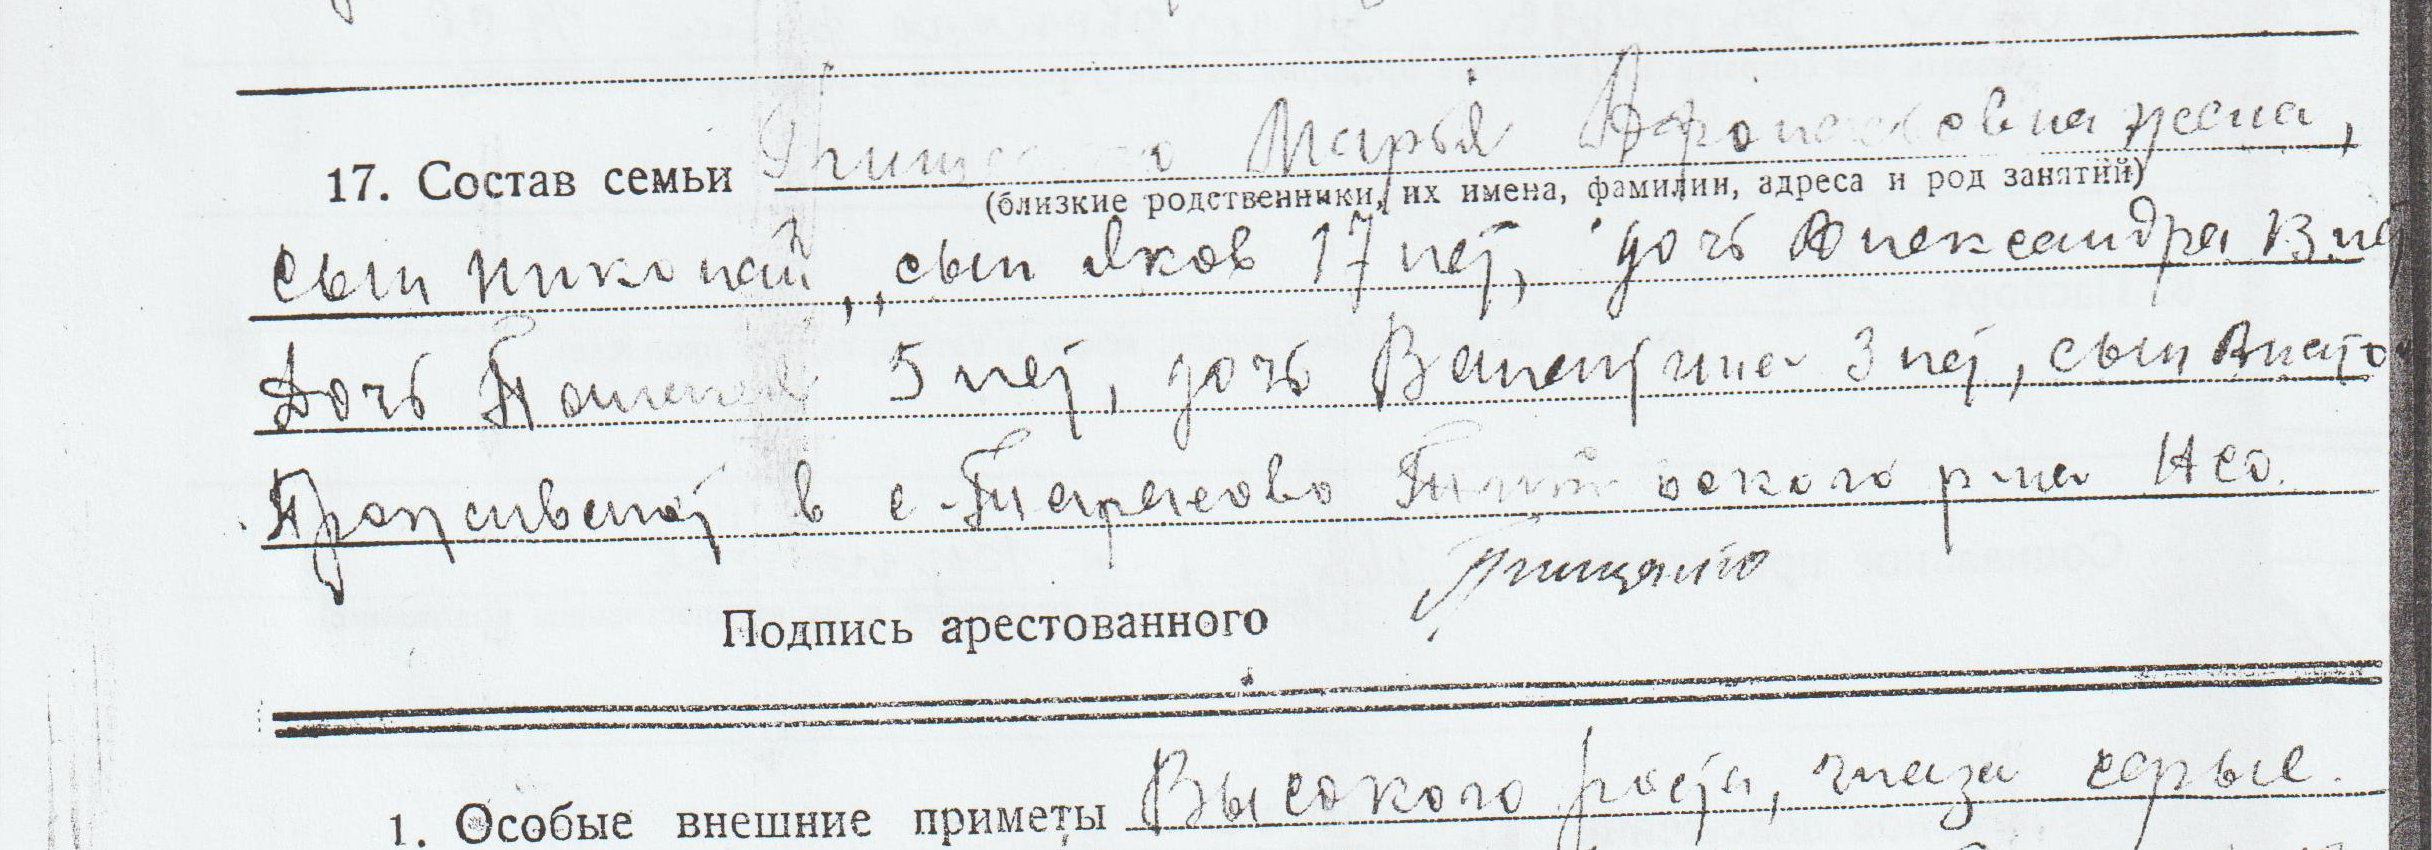 17. Состав семьи Марья жена,
(близкие родственники, их имена, фамилии, адреса и род занятий)
сын Николай, , сын Яков 17 лет, дочь Александра
Дочь 5 лет, дочь Валентина 3 лет, сын
Проживают в с. р-на НСО.
Подпись арестованного
1. Особые внешние приметы Высокого роста, глаза серые.